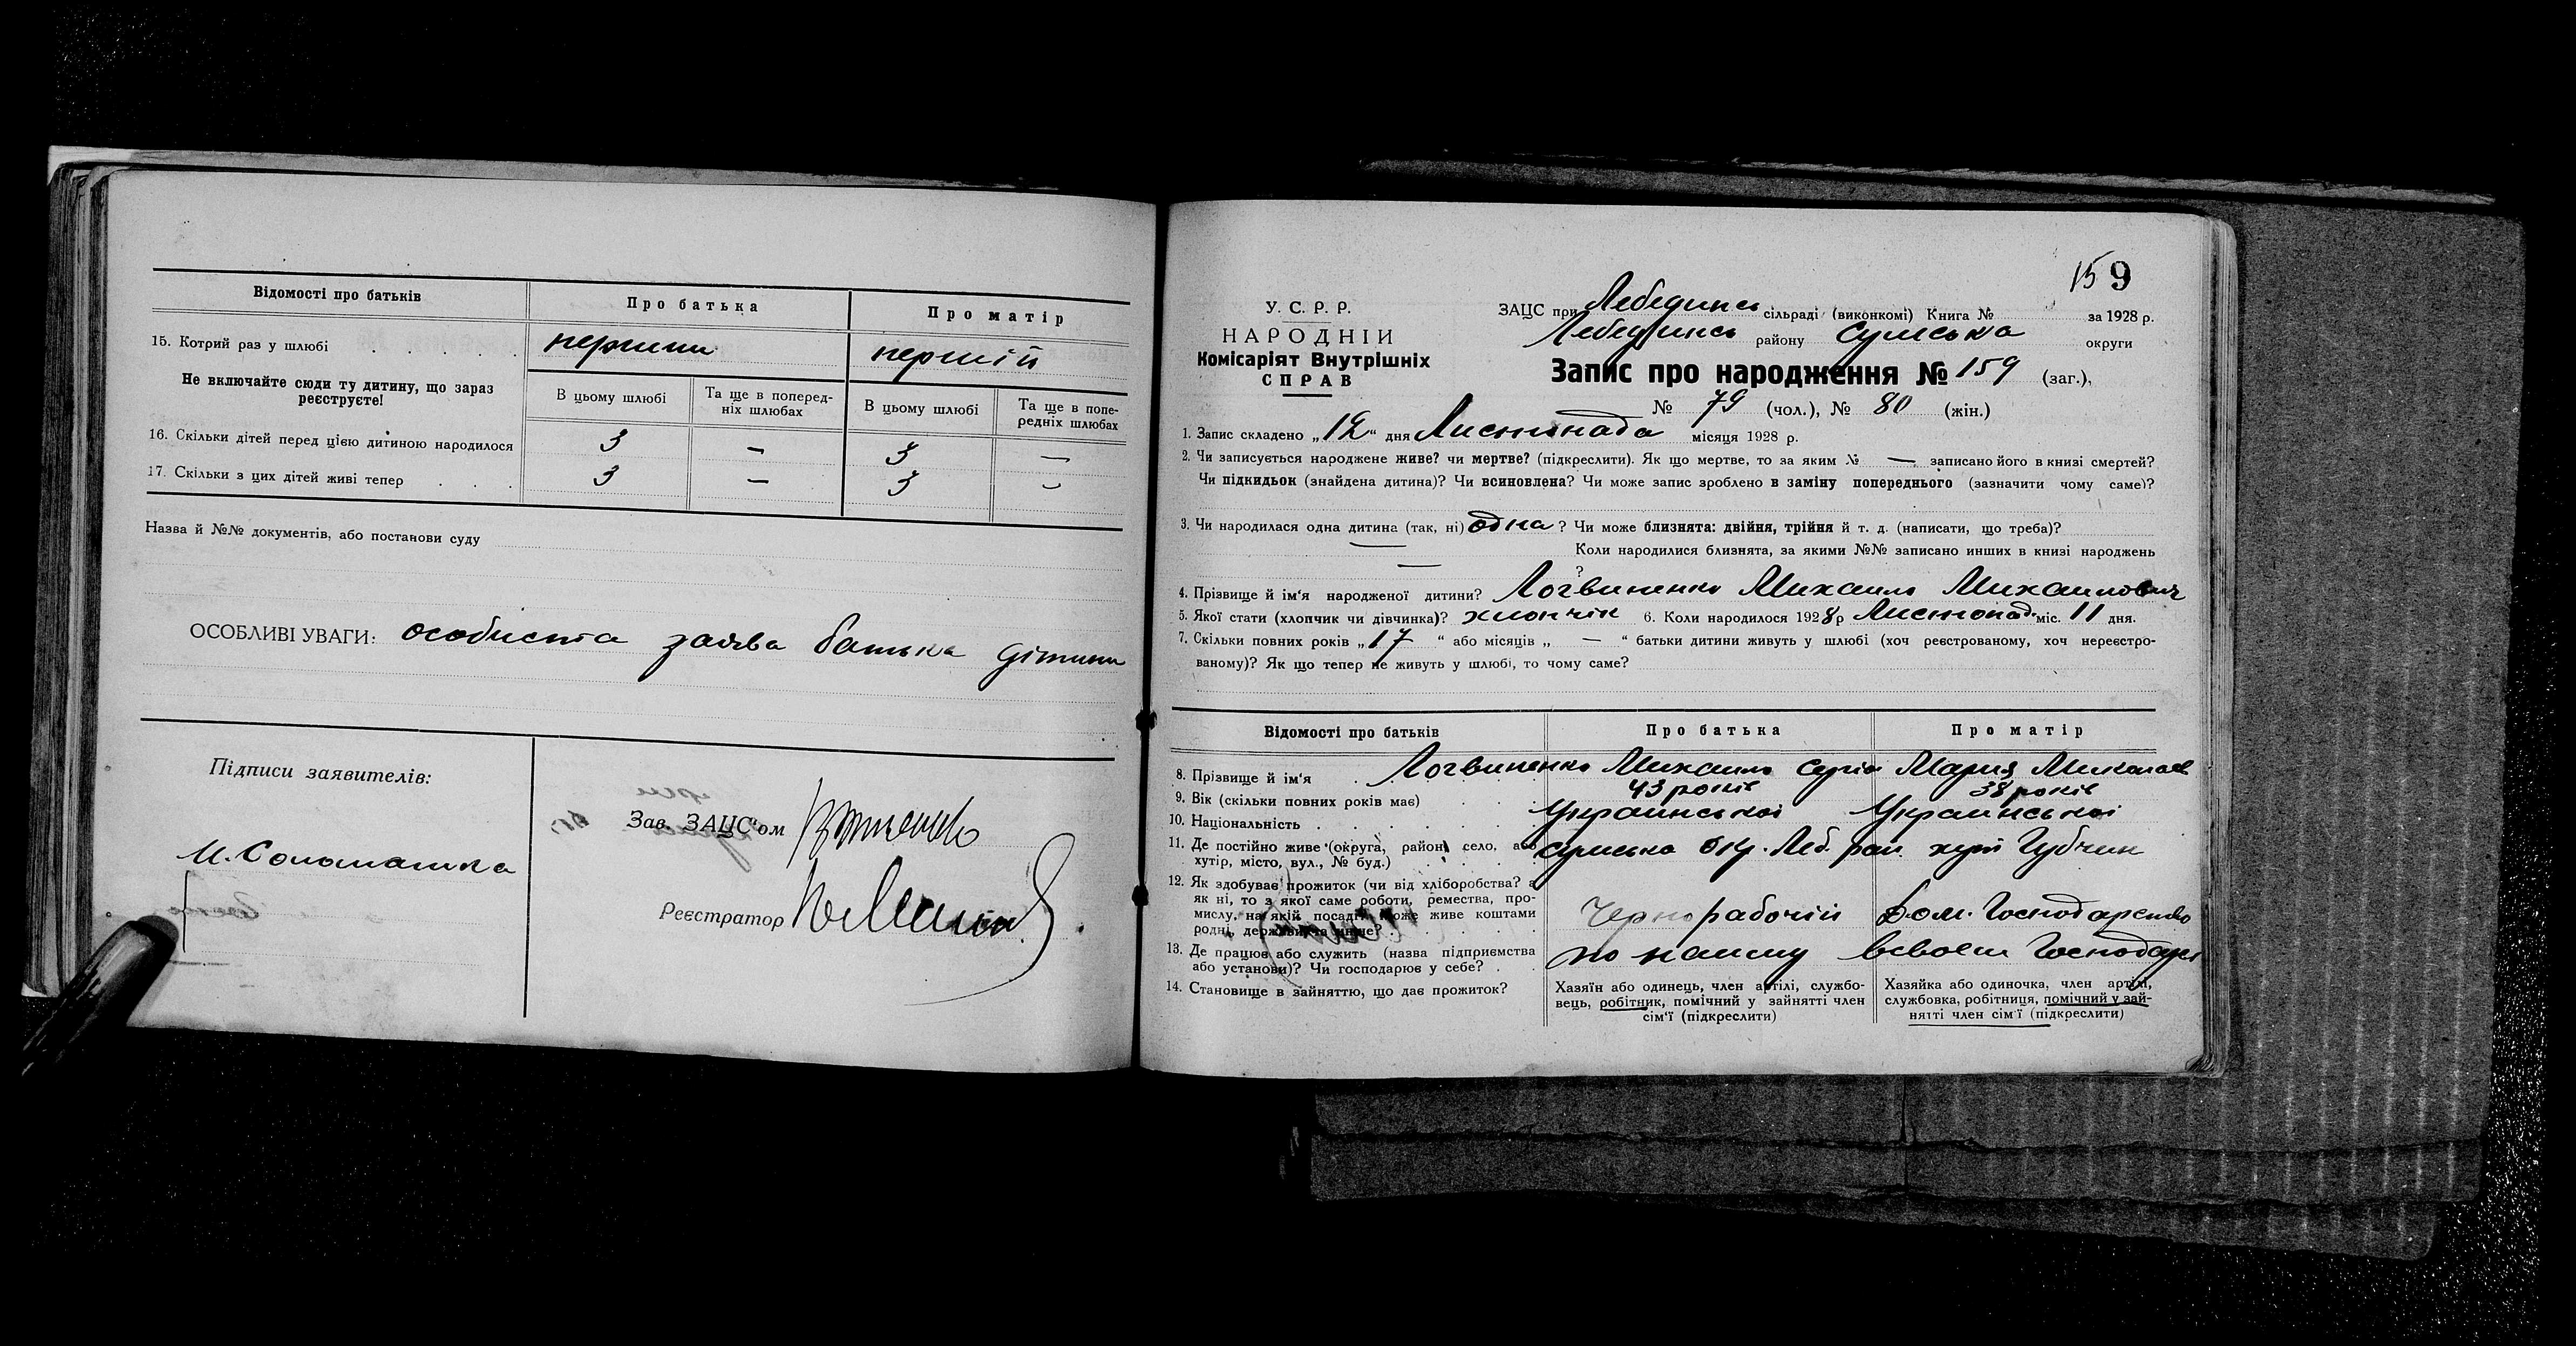 Відомості про батьків
Про батька
Про матір
15. Котрий раз у шлюбі
першии
першій
Не включайте сюди ту дитину, що зараз реєструєте!
В цьому шлюбі
Та ще в поперед-
ніх шлюбах
В цьому шлюбі
Та ще в попе-
редніх шлюбах
16. Скільки дітей перед цією дитиною народилося
3 — 3 —
17. Скільки з цих дітей живі тепер
3 — 3 —
Назва й №№ документів, або постанови суду
ОСОБЛИВІ УВАГИ: особиста заява батька дітини
Підписи заявителів:
И. Соломашка
Зав. ЗАЦС'ом
Реєстратор
159
У. С. Р. Р.
НАРОДНІЙ
Комісаріят Внутрішніх
СПРАВ
ЗАЦС при Лебединсь сільраді (виконкомі) Книга № за 1928 р.
Лебединсь району Сумська округи
Запис про народження № 159 (заг.),
№ 79 (чол.), № 80 (жін.)
1. Запис складено „12“ дня Листопада місяця 1928 р.
2. Чи записується народжене живе? чи мертве? (підкреслити). Як що мертве, то за яким № — записано його в книзі смертей?
Чи підкидьок (знайдена дитина)? Чи всиновлена? Чи може запис зроблено в заміну попереднього (зазначити чому саме)?
3. Чи народилася одна дитина (так, ні) одна? Чи може близнята: двійня, трійня й т. д. (написати, що треба)?
— Коли народилися близнята, за якими №№ записано инших в книзі народжень
— ?
4. Прізвище й ім'я народженої дитини? Логвиненко Михаило Михаилович
5. Якої стати (хлопчик чи дівчинка)? хлопчік 6. Коли народилося 1928 р Листопад. міс. 11 дня.
7. Скільки повних років „17“ або місяців „—“ батьки дитини живуть у шлюбі (хоч реєстрованому, хоч нереєстро-
ваному)? Як що тепер не живуть у шлюбі, то чому саме?
Відомості про батьків
Про батька
Про матір
8. Прізвище й ім'я Логвиненко Михаило Сергіє Мария Миколаев
9. Вік (скільки повних років має) 43 років 38 років
10. Національність Українськоі Українськоі
11. Де постійно живе (округа, район, село, або
хутір, місто, вул., № буд.)
Сумська окр. Леб. раи. хут Губчин
12. Як здобуває прожиток (чи від хліборобства? а
як ні, то з якої саме роботи, ремества, про-
мислу, на якій посаді? Може живе коштами
родні, держави та инше?
Чернорабочій
Дом. Господарство
13. Де працює або служить (назва підприємства
або установи)? Чи господарює у себе?
по найму
в своем Господарс
14. Становище в зайняттю, що дає прожиток?
Хазяїн або одинець, член артілі, службо-
вець, робітник, помічний у зайнятті член
сім'ї (підкреслити)
Хазяйка або одиночка, член артілі,
службовка, робітниця, помічний у зай-
нятті член сім'ї (підкреслити)